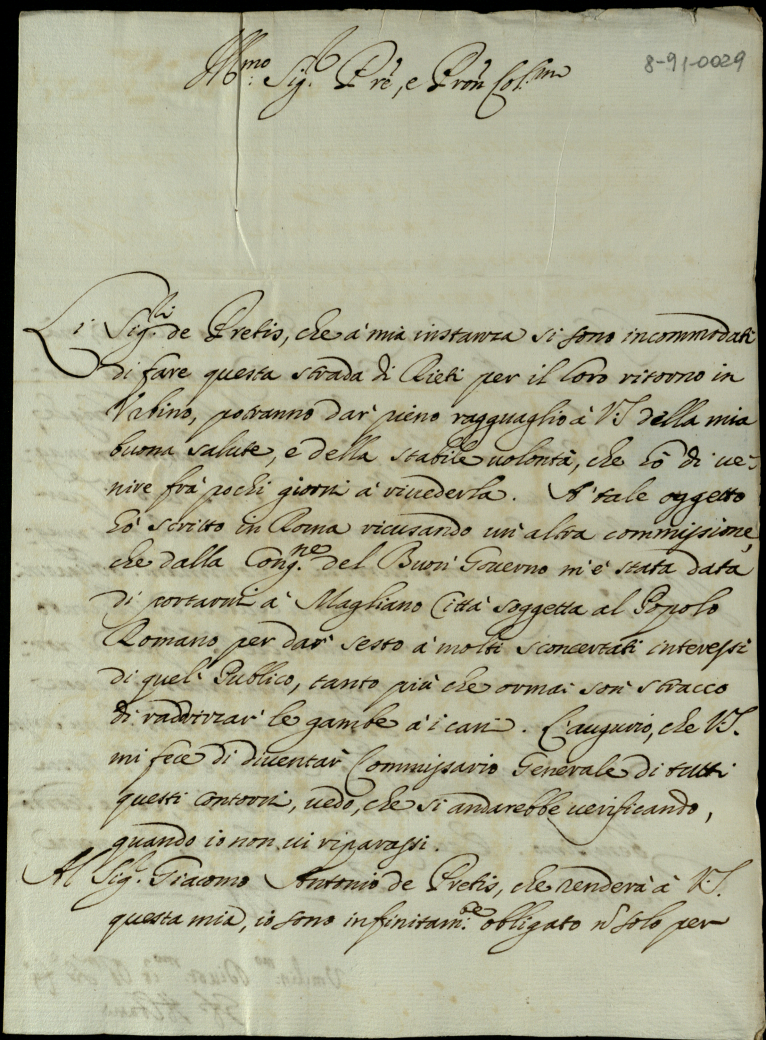 8-91-0029
Ill.mo Sig.r P.rè, e Pron Col.mo
Li Sig.li de Pretis, che à mia instanza si sono incommodati
di fare questa strada di Rieti per il loro ritorno in
Urbino, potranno dar' pieno ragguaglio à V.S. della mia
buona salute, e della stabile uolontà, che hò di ue-
nire frà pochi giorni à riuederla. A' tale oggetto
hò scritto in Roma ricusando un'altra commissione,
che dalla Cong.ne del Buon Gouerno m'è stata data
di portarmi à Magliano Città soggetta al Popolo
Romano per dar' sesto à molti sconcertati interessi
di quel' Publico, tanto più che ormai son' stracco
di raddrizzar' le gambe à i cani. L'augurio, che V.S.
mi fece di diuentar' Commissario Generale di tutti
questi contorni, uedo, che si andarebbe uerificando,
quando io non ui riparassi.
Al Sig.r Giacomo Antonio de Pretis, che renderà à V.S.
questa mia, io sono infinitam.te obligato nō solo per